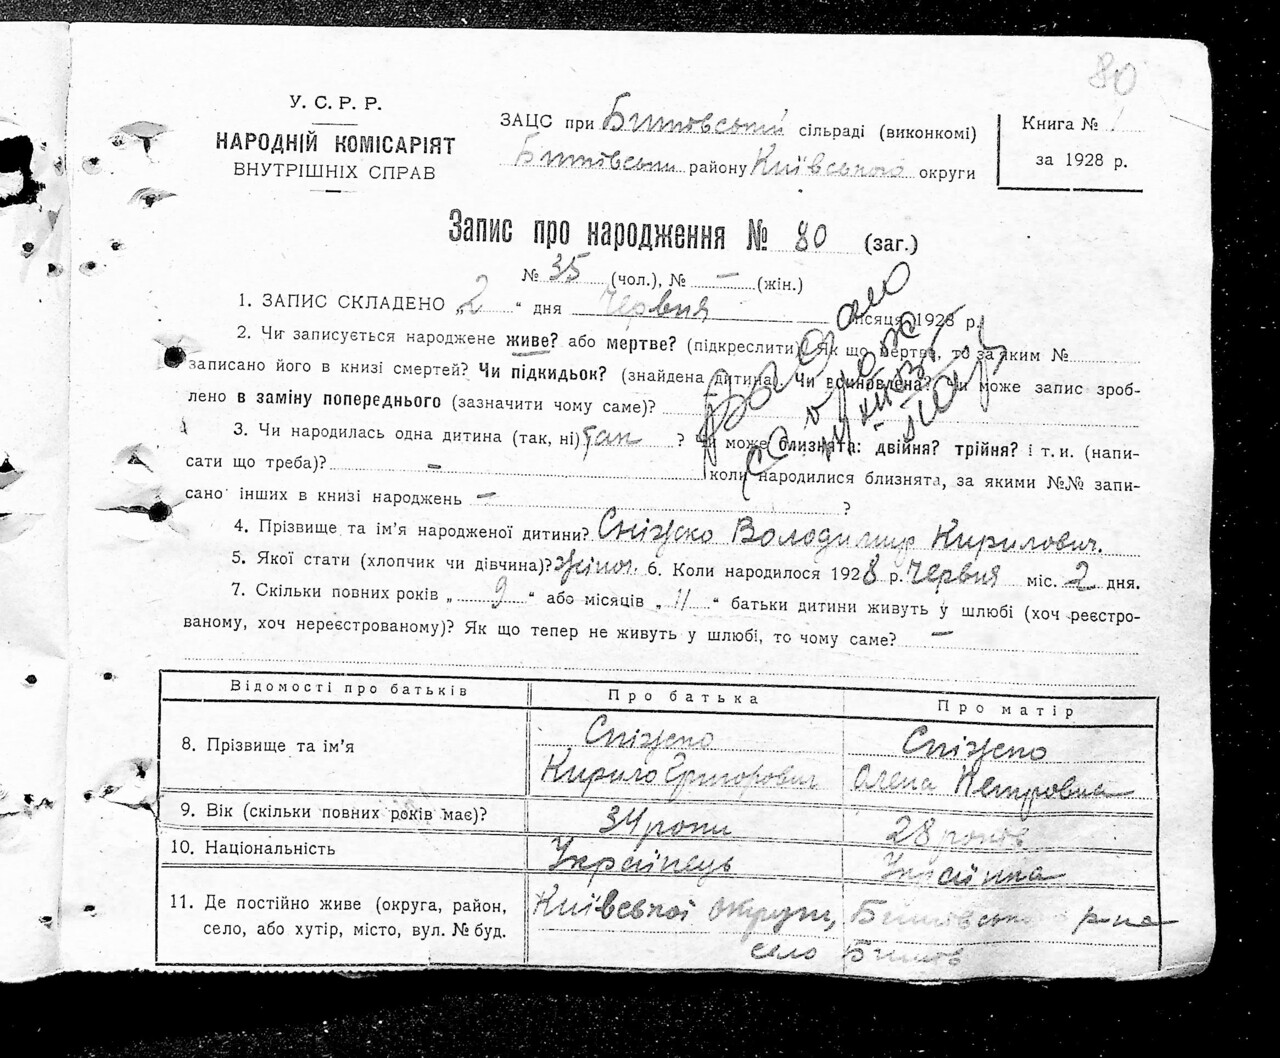 80
У. С. Р. Р.
НАРОДНІЙ КОМІСАРІЯТ
ВНУТРІШНІХ СПРАВ
ЗАЦС при Бишовській сільраді (виконкомі)
Бишівськ району Київської округи
Книга № 1
за 1928 р.
Запис про народження № 80 (заг.)
№ 35 (чол.), № — (жін.)
1. ЗАПИС СКЛАДЕНО „2“ дня Червня місяця 1928 р.
2. Чи записується народжене живе? або мертве? (підкреслити) Як що мертве, то за яким №
записано його в книзі смертей? Чи підкидьок? (знайдена дитина). Чи всиновлена? Чи може запис зроб-
лено в заміну попереднього (зазначити чому саме)?
3. Чи народилась одна дитина (так, ні) Так ? Чи може близнята: двійня? трійня? і т. и. (напи-
сати що треба)? — коли народилися близнята, за якими №№ запи-
сано інших в книзі народжень — ?
4. Прізвище та ім'я народженої дитини? Сніжко Володимир Кирилович.
5. Якої стати (хлопчик чи дівчина)? 6. Коли народилося 1928 р. Червня міс. 2 дня.
7. Скільки повних років „ 9 “ або місяців „ 11 “ батьки дитини живуть у шлюбі (хоч реєстро-
ваному, хоч нереєстрованому)? Як що тепер не живуть у шлюбі, то чому саме? —
Відомості про батьків Про батька Про матір
8. Прізвище та ім'я Сніжко Кирило Григорович Сніжко Олена Петровна
9. Вік (скільки повних років має)? 34 роки 28 років
10. Національність Українець Українка
11. Де постійно живе (округа, район, Київської округи, Бишівськ р-на
село, або хутір, місто, вул. № буд. село Бишів